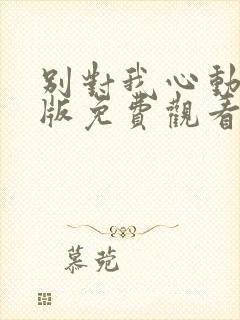 別對我心動
版免費觀看
慕菀